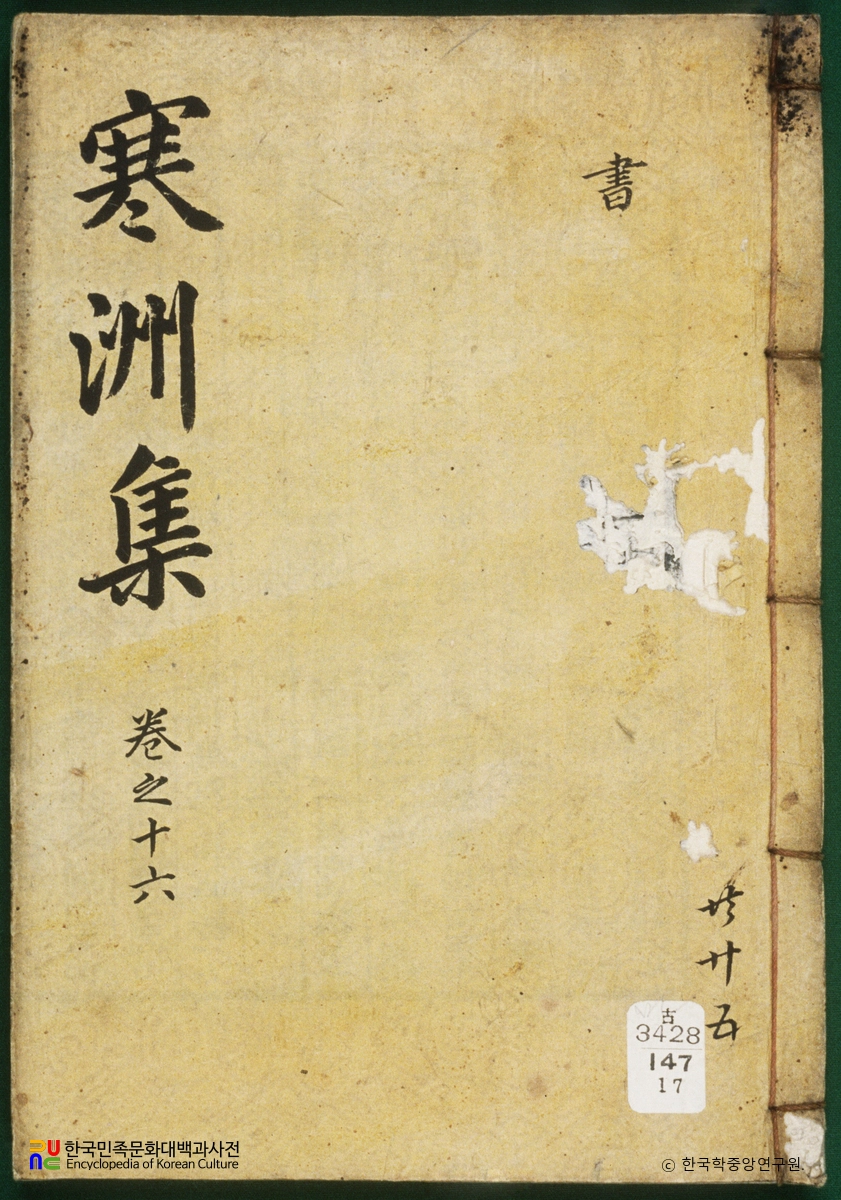 寒洲集
卷之十六
書
共廿五
古
3428
147
17
한국민족문화대백과사전
Encyclopedia of Korean Culture
© 한국학중앙연구원.